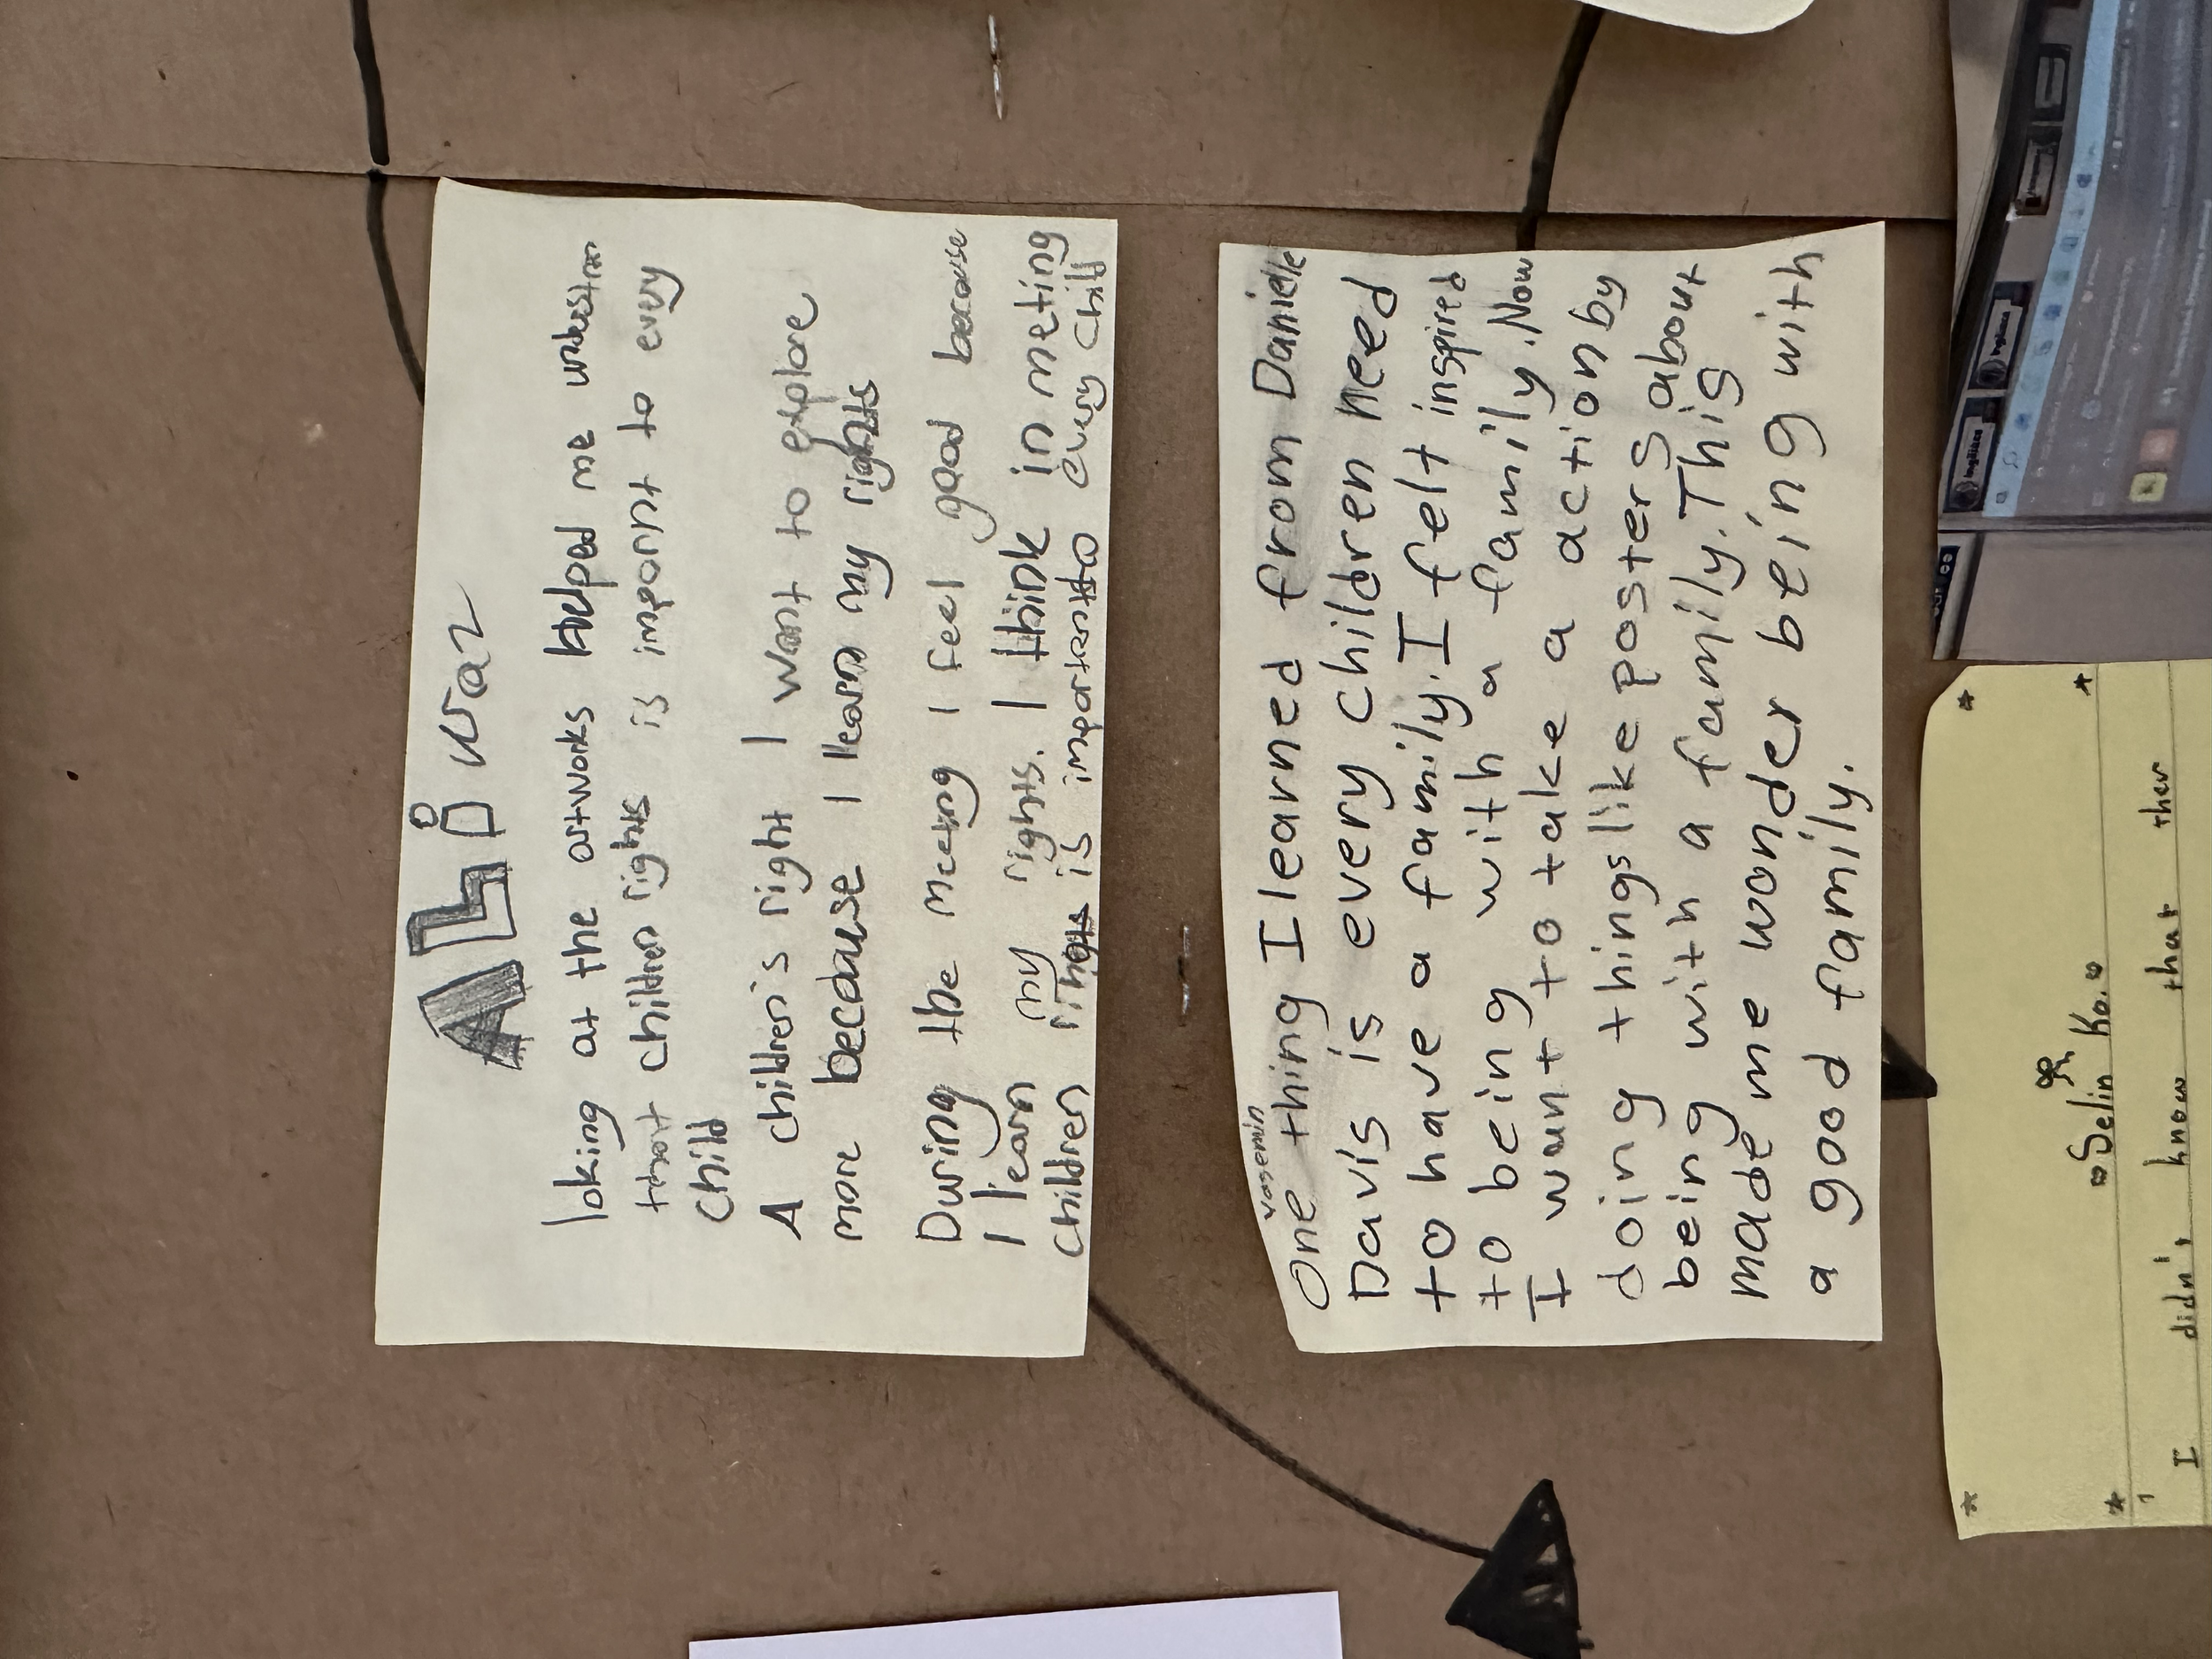 ALi Naz
loking at the artworks helped me understan
that children rights is impornt to every
child
A children's right I want to explore
more because I learn my rights
During the meeting I feel good because
I learn my rights. I think in meeting
children rights is important to every child
Yasemin
One thing I learned from Danielle
Davis is every children need
to have a family. I felt inspired
to being with a family. Now
I want to take a action by
doing things like posters about
being with a family. This
made me wonder being with
a good family.
Selin Ko.
I didn't know that ther